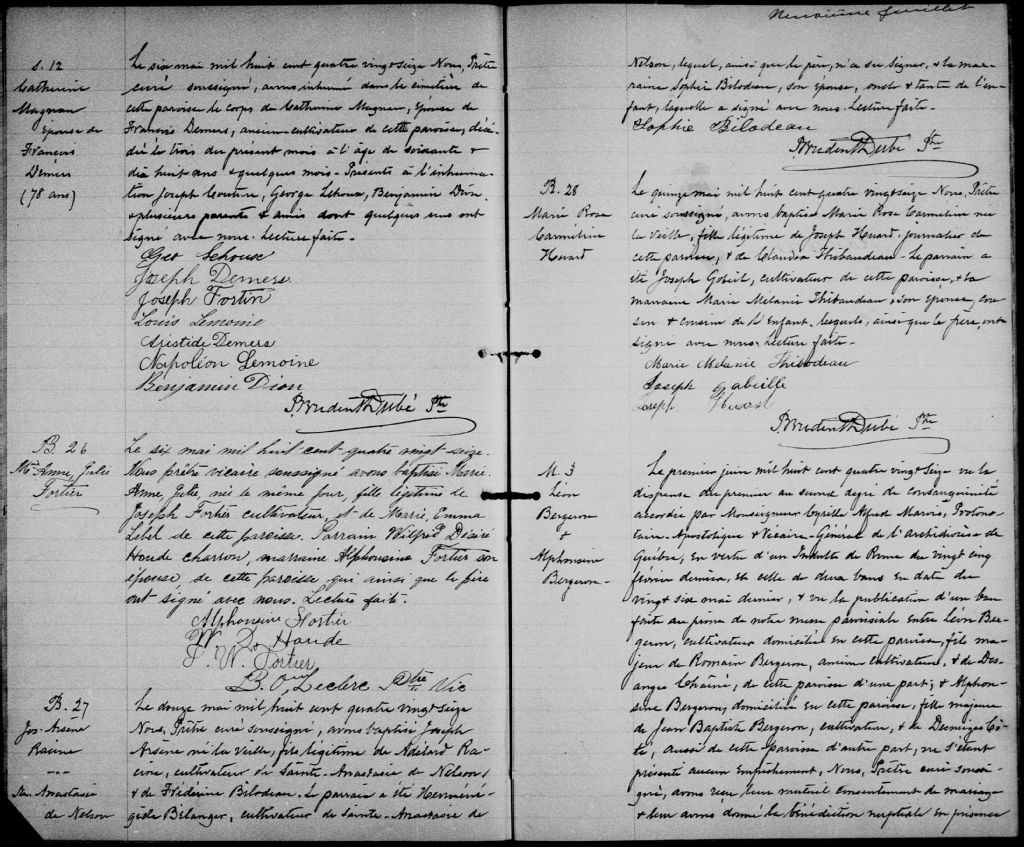 S. 12
Catherine
Magnan
Epouse de
François
Demers
(78 ans)
Le six mai mil huit cent quatre vingt seize Nous, Prêtre
curé soussigné, avons inhumé dans le cimetière de
cette paroisse le corps de Catherine Magnan, Epouse de
François Demers, ancien cultivateur de cette paroisse, décé-
dée le trois du présent mois à l'âge de soixante &
dix huit ans & quelques mois. Présents à l'inhuma-
tion Joseph Couture, George Lehoux, Benjamin Dion
& plusieurs parents & amis dont quelques uns ont
signé avec nous. Lecture faite.
Geo Lehouse
Joseph Demers
Joseph Fortin
Louis Lemoine
Aristide Demers
Napoléon Lemoine
Benjamin Dion
Prudent Dubé Ptre
B. 26
Mie Anne, Julie
Fortier
Le six mai mil huit cent quatre vingt seize.
Nous prêtre vicaire soussigné avons baptisé Marie
Anne, Julie, née le même jour, fille légitime de
Joseph Fortier cultivateur, et de Marie, Emma
Lebel de cette paroisse. Parrain Wilfrid Désiré
Houde charron, marraine Alphonsine Fortier son
épouse, de cette paroisse qui ainsi que le père
ont signé avec nous. Lecture faite.
Alphonsine Fortier
W. D. Houde
J. W. Fortier
B. O. Leclerc Ptre Vic
B. 27
Jos. Arsène
Racine
---
Ste Anastasie
de Nelson
Le douze mai mil huit cent quatre vingt seize
Nous, Prêtre curé soussigné, avons baptisé Joseph
Arsène né la veille, fils légitime de Adélard Ra-
cine, cultivateur de Sainte-Anastasie de Nelson,
& de Frédérine Bilodeau. Le parrain a été Herméné-
gide Bélanger, cultivateur de Sainte-Anastasie de
Neuvième feuillet
Nelson, lequel, ainsi que le père, n'a su signer, & la mar-
raine Sophie Bilodeau, son épouse, oncle & tante de l'en-
fant, laquelle a signé avec nous. Lecture faite.
Sophie Bilodeau
Prudent Dubé Ptre
B. 28
Marie Rose
Carmeline
Huard
Le quinze mai mil huit cent quatre vingt seize Nous, Prêtre
curé soussigné, avons baptisé Marie Rose Carmeline née
la veille, fille légitime de Joseph Huard, journalier de
cette paroisse, & de Claudia Thibaudeau. Le parrain a
été Joseph Gobeil, cultivateur de cette paroisse, & la
marraine Marie Mélanie Thibaudeau, son épouse, cou-
sin & cousine de l'Enfant, lesquels, ainsi que le père, ont
signé avec nous. Lecture faite.
Marie Melanie Thibodeau
Joseph Gabeille
Joseph Huard
Prudent Dubé Ptre
M. 3
Léon
Bergeron
&
Alphonsine
Bergeron-
Le premier juin mil huit cent quatre vingt seize vu la
dispense du premier au second degré de consanguinité
accordée par Monseigneur Cyrille Alfred Marois, Protono-
taire-Apostolique & Vicaire-Général de l'archidiocèse de
Québec, en vertu d'un Indult de Rome du vingt cinq
février dernier, et celle de deux bans en date du
vingt six mai dernier, & vu la publication d'un ban
faite au prône de notre messe paroissiale entre Léon Ber-
geron, cultivateur domicilié en cette paroisse, fils ma-
jeur de Romain Bergeron, ancien cultivateur, & de Des-
anges Chaîné, de cette paroisse d'une part; & Alphon-
sine Bergeron, domiciliée en cette paroisse, fille majeure
de Jean Baptiste Bergeron, cultivateur, & de Desneiges Cô-
té, aussi de cette paroisse d'autre part, ne s'étant
présenté aucun Empêchement, Nous, Prêtre curé soussi-
gné, avons reçu leur mutuel consentement de mariage
& leur avons donné la bénédiction nuptiale en présence